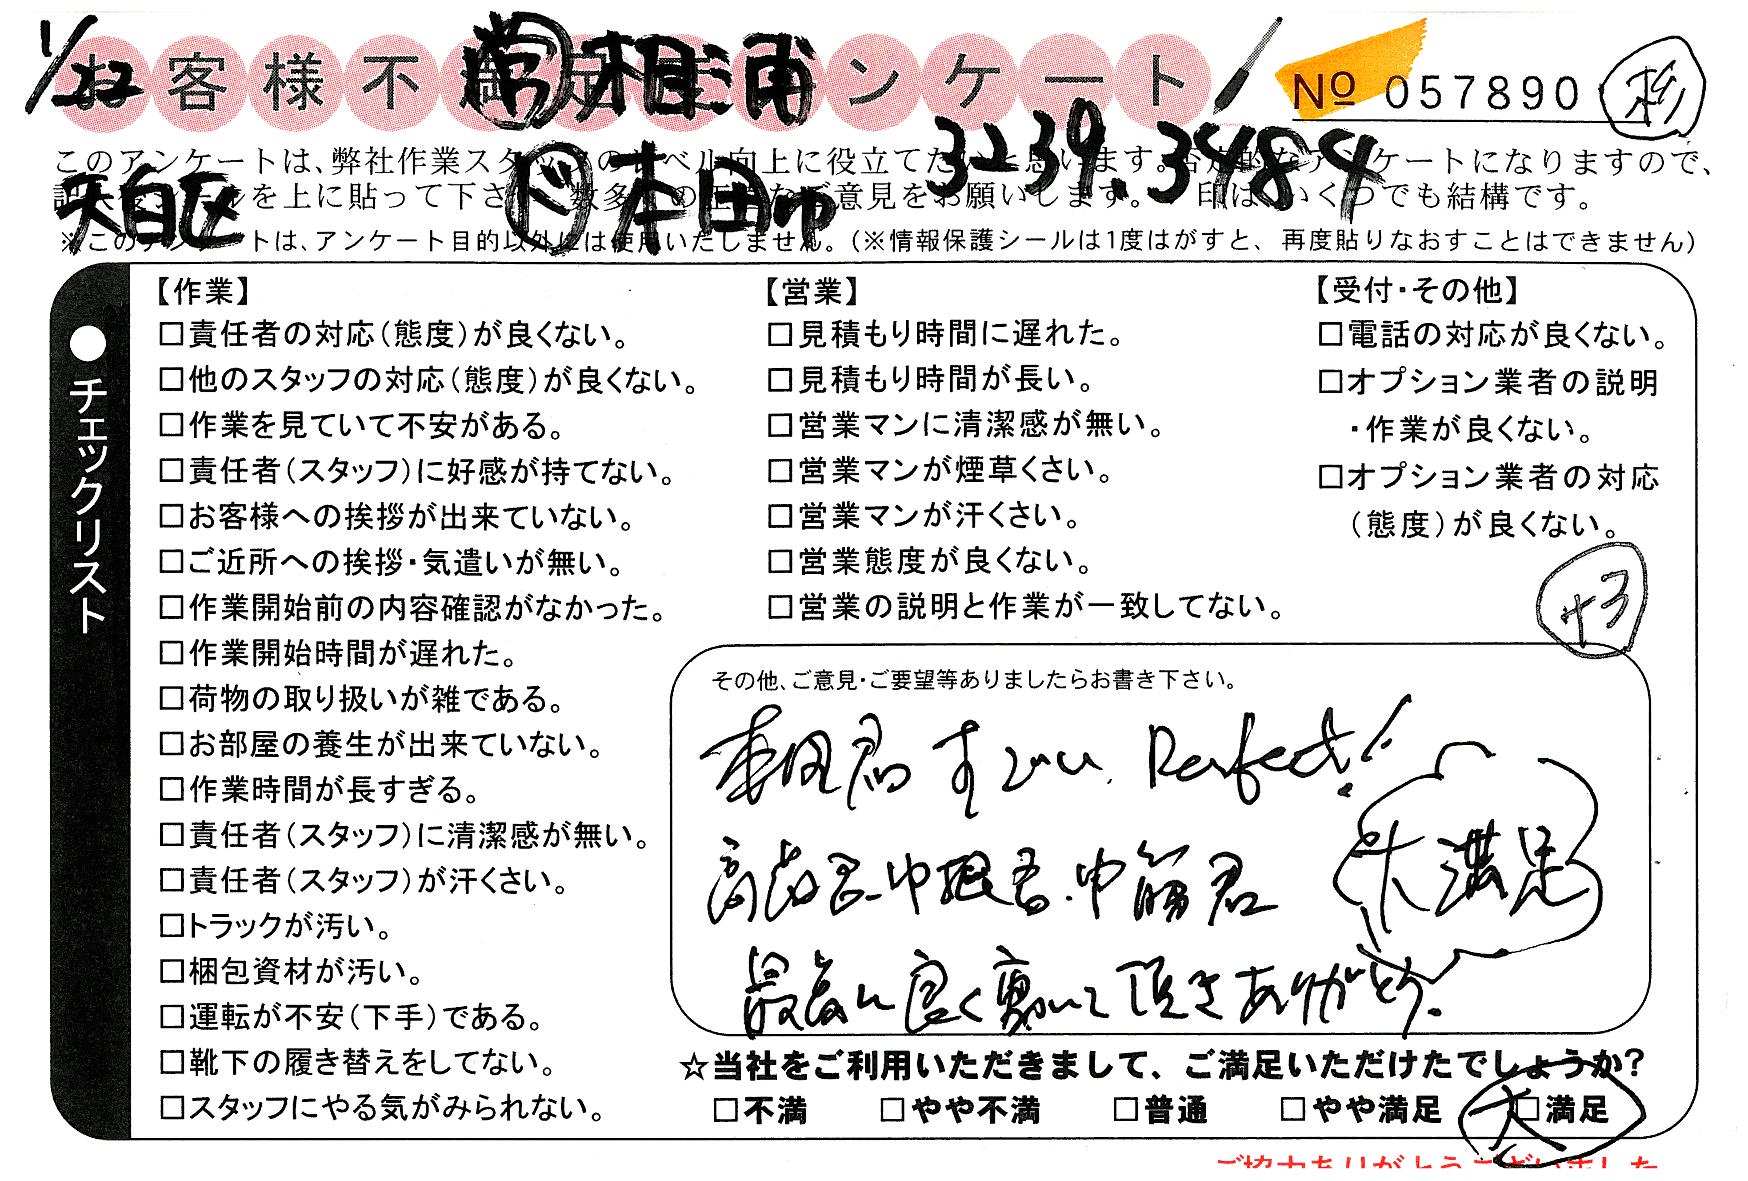 1/22
お客様不満足度アンケート
営 相浦
№ 057890
杉
3239.3484
天白区
ド 本田ゆ
このアンケートは、弊社作業スタッフのレベル向上に役立てたいと思います。否定的なアンケートになりますので、
を上に貼って下さ 数多くの正直なご意見をお願いします。 印は、いくつでも結構です。
※このアンケートは、アンケート目的以外には使用いたしません。（※情報保護シールは1度はがすと、再度貼りなおすことはできません）
●チェックリスト
【作業】
□責任者の対応（態度）が良くない。
□他のスタッフの対応（態度）が良くない。
□作業を見ていて不安がある。
□責任者（スタッフ）に好感が持てない。
□お客様への挨拶が出来ていない。
□ご近所への挨拶・気遣いが無い。
□作業開始前の内容確認がなかった。
□作業開始時間が遅れた。
□荷物の取り扱いが雑である。
□お部屋の養生が出来ていない。
□作業時間が長すぎる。
□責任者（スタッフ）に清潔感が無い。
□責任者（スタッフ）が汗くさい。
□トラックが汚い。
□梱包資材が汚い。
□運転が不安（下手）である。
□靴下の履き替えをしてない。
□スタッフにやる気がみられない。
【営業】
□見積もり時間に遅れた。
□見積もり時間が長い。
□営業マンに清潔感が無い。
□営業マンが煙草くさい。
□営業マンが汗くさい。
□営業態度が良くない。
□営業の説明と作業が一致してない。
【受付・その他】
□電話の対応が良くない。
□オプション業者の説明
・作業が良くない。
□オプション業者の対応
（態度）が良くない。
+3
その他、ご意見・ご要望等ありましたらお書き下さい。
本田君 すごい、Perfect!
君・中根君・中筋君
大満足
最高に良く動いて頂きありがとう。
☆当社をご利用いただきまして、ご満足いただけたでしょうか？
□不満 □やや不満 □普通 □やや満足 □満足
大
ご協力ありがとうございました